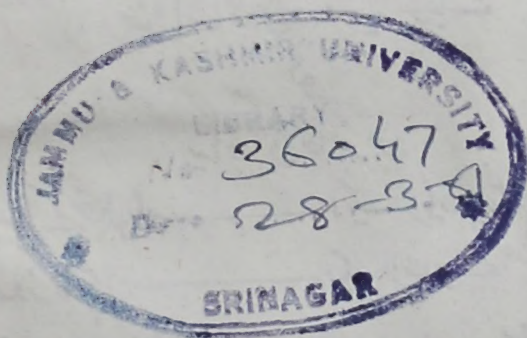 JAMMU & KASHMIR UNIVERSITY
LIBRARY
No 36047
Date 28-3-
SRINAGAR